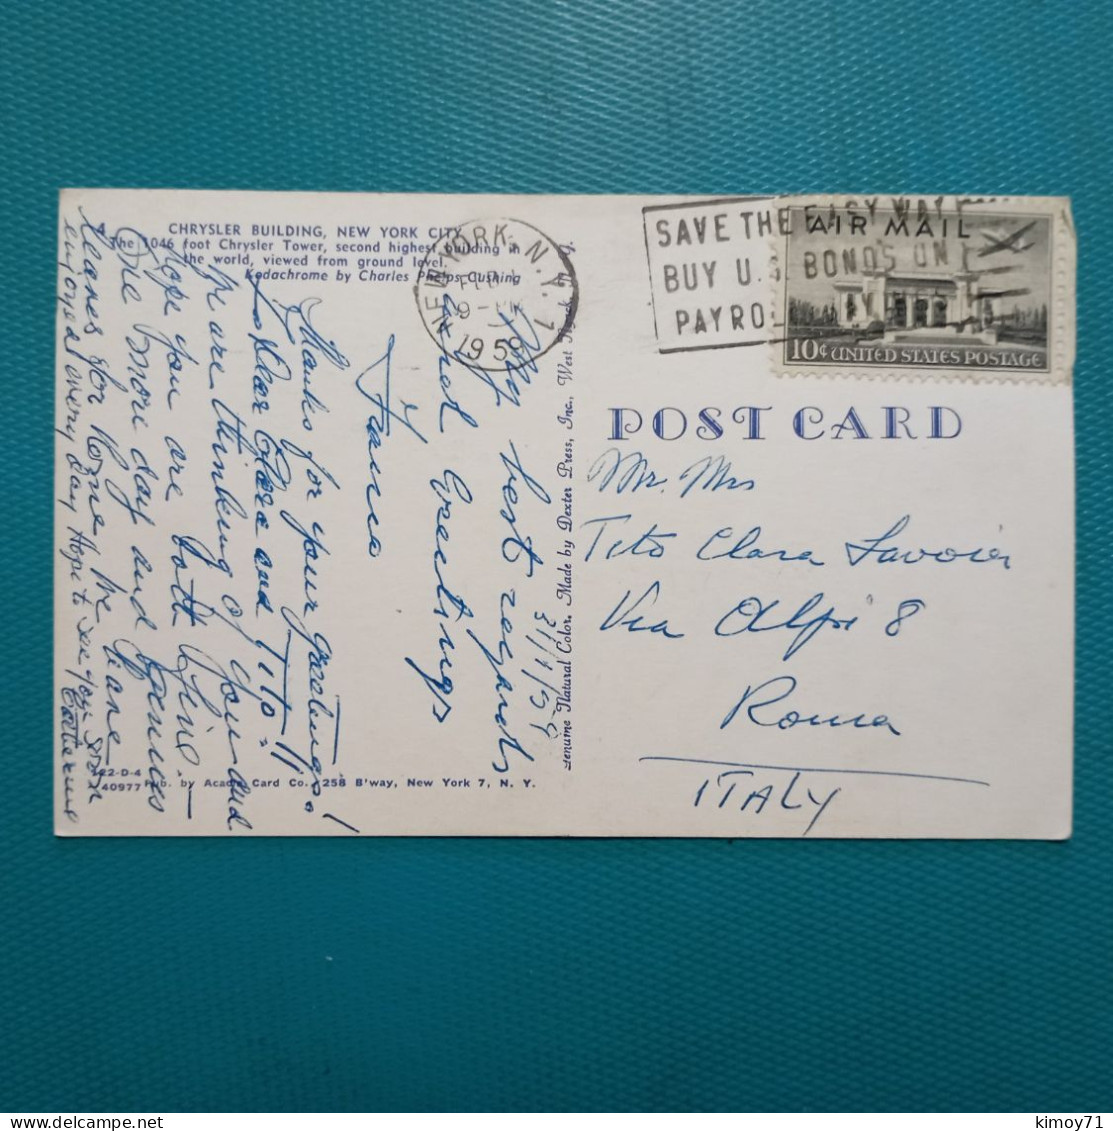 CHRYSLER BUILDING, NEW YORK CITY
The 1046 foot Chrysler Tower, second highest building in
the world, viewed from ground level.
Kodachrome by Charles Phelps Cushing
NEW YORK, N.Y. 1
1959
SAVE THE EASY WAY
BUY U.S. BONDS ON
PAYROLL
AIR MAIL
10¢ UNITED STATES POSTAGE
POST CARD
Mr. Mrs
Tito Clara Savoia
Via Alpi 8
Roma
ITALY
Genuine Natural Color. Made by Dexter Press, Inc., West Nyack, N. Y.
31/1/59
My best regards
and Greetings
Thanks for your greetings!
Dear Clara and Tito:
We are thinking of you and
hope you are both fine
One more day and
leaves for Rome. We have
enjoyed every day Hope to see you soon
Pub. by Acacia Card Co., 258 B'way, New York 7, N. Y.
22-D-4
40977
kimoy71